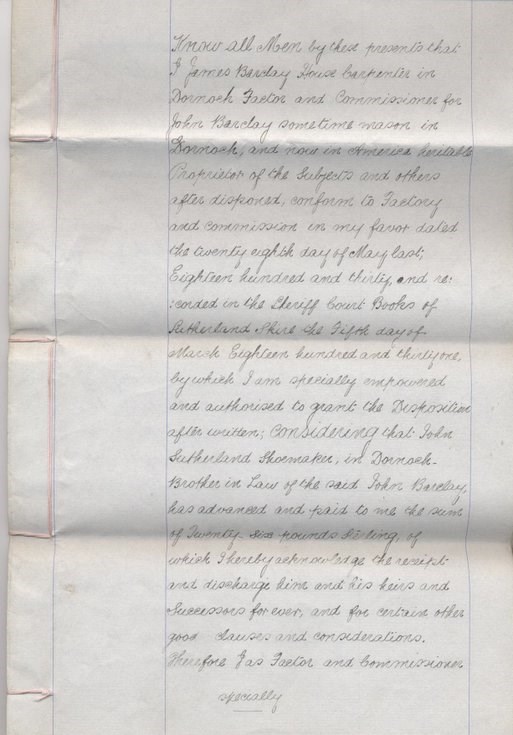 Know all Men by these presents that
I James Barclay House Carpenter in
Dornoch Factor and Commissioner for
John Barclay sometime mason in
Dornoch, and now in America heritable
Proprietor of the Subjects and others
after disponed, conform to Factory
and commission in my favor dated
the twenty eighth day of May last;
Eighteen hundred and thirty, and re:
:corded in the Sheriff Court Books of
Sutherland Shire the Fifth day of
March Eighteen hundred and thirty one,
by which I am specially empowered
and authorised to grant the Disposition
after written; Considering that John
Sutherland Shoemaker, in Dornoch-
Brother in Law of the said John Barclay,
has advanced and paid to me the sum
of Twenty six pounds Sterling, of
which I hereby acknowledge the receipt
and discharge him and his heirs and
Successors for ever, and for certain other
good clauses and considerations.
Therefore I as Factor and Commissioner
specially